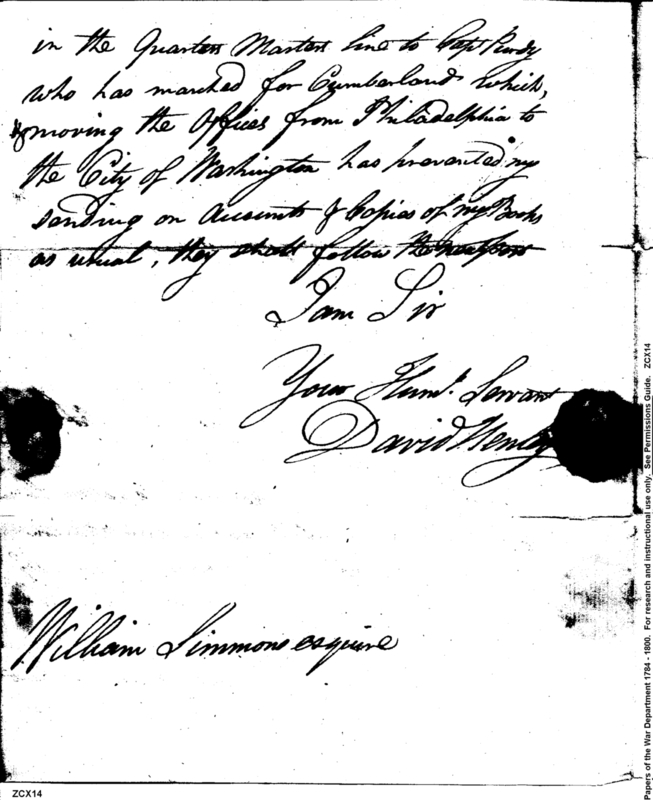 in the Quarter Masters line to Capt Purdy
who has marched for Cumberland which,
& moving the Offices from Philadelphia to
the City of Washington has prevented my
sending on Accounts & Copies of my Books
as usual, they shall follow the next post
I am Sir
Your Humb. Servant
David Henley
William Simmons esquire
ZCX14
Papers of the War Department 1784 - 1800. For research and instructional use only. See Permissions Guide. ZCX14